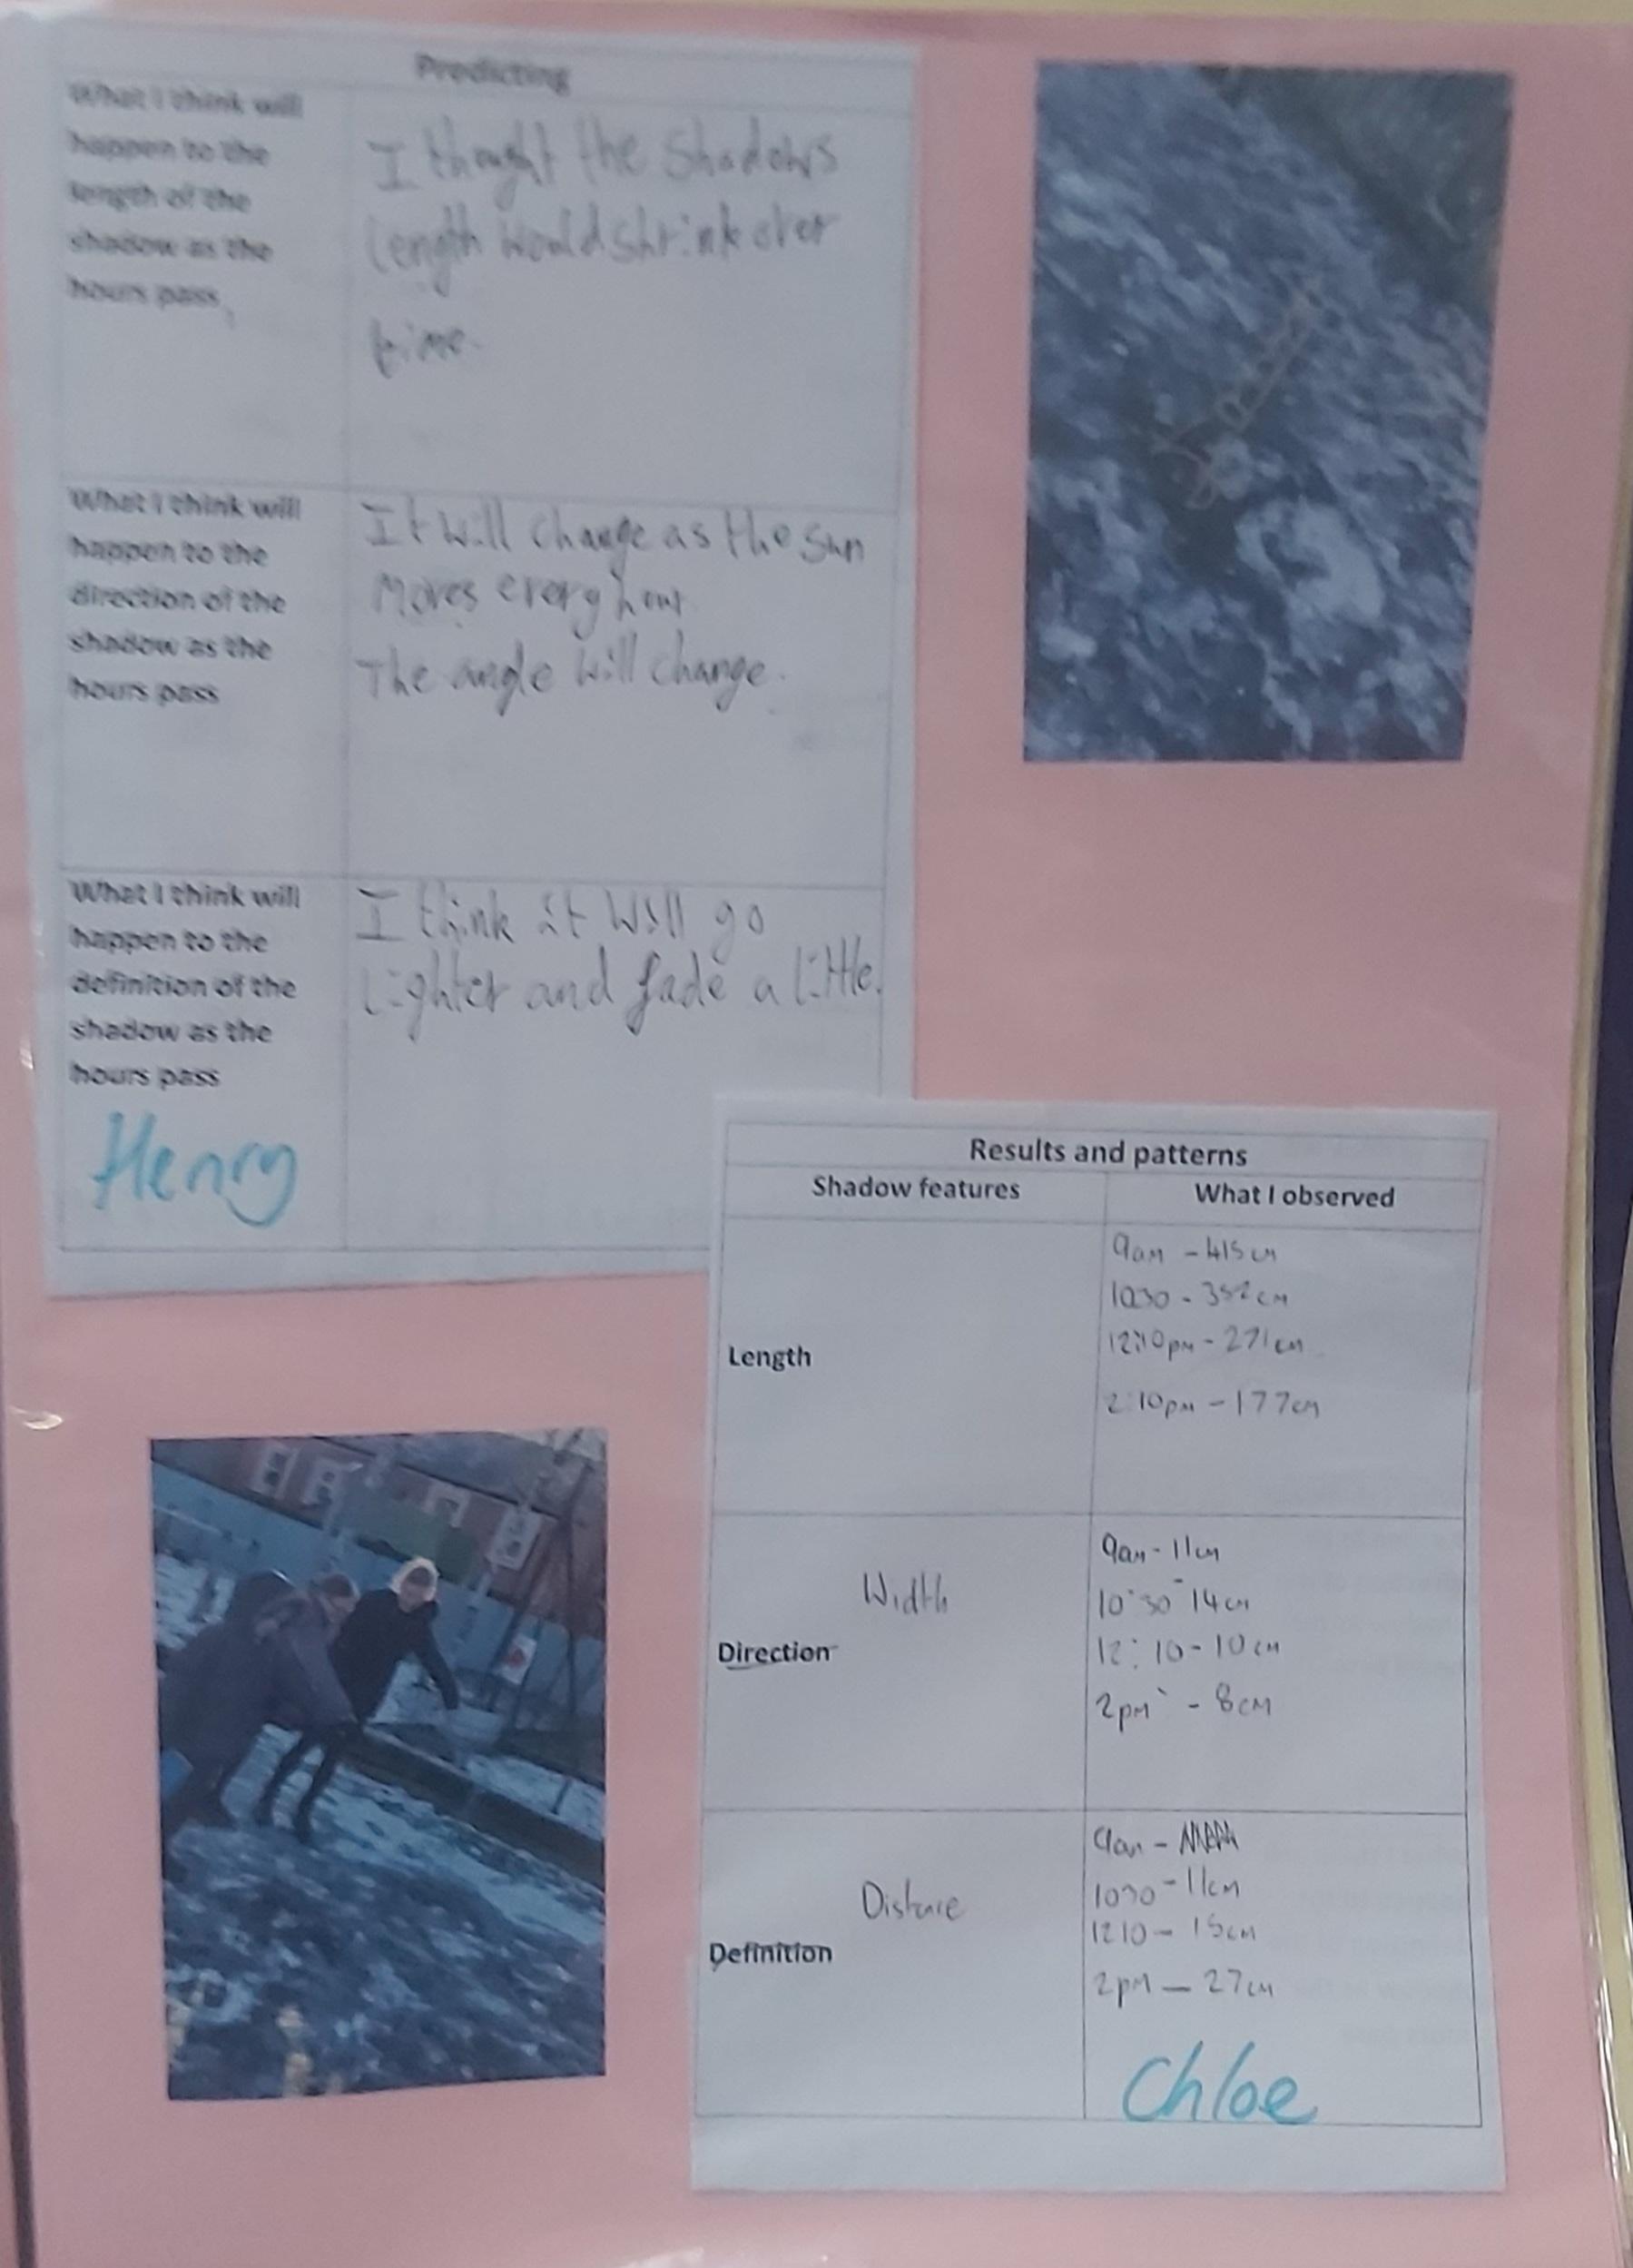 Predicting
What I think will
happen to the
length of the
shadow as the
hours pass
I thought the shadows
length would shrink over
time.
What I think will
happen to the
direction of the
shadow as the
hours pass
It will change as the sun
moves every hour
The angle will change.
What I think will
happen to the
definition of the
shadow as the
hours pass
I think it will go
lighter and fade a little.
Henry
Results and patterns
Shadow features
What I observed
Length
9am - 415cm
1030 - 352cm
12:10pm - 271cm
2:10pm - 177cm
Width
Direction
9am - 11cm
10:30 - 14cm
12:10 - 10cm
2pm - 8cm
Distance
Definition
9am -
1030 - 11cm
1210 - 15cm
2pm - 27cm
Chloe